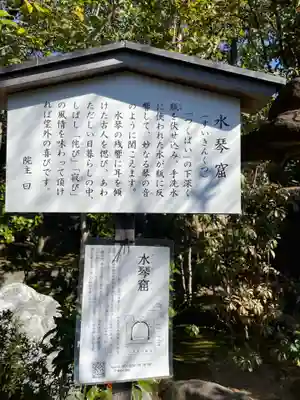 水琴窟
(すいきんくつ)
「つくばい」の下深く
瓶を伏せ込み、手洗水
に使われた水が瓶に反
響して、妙なる琴の音
のように聞こえます。
水琴の残響に耳を傾
けた古人を偲び、あわ
ただしい日暮らしの中、
しばし「侘び」「寂び」
の風情を味わって頂け
れば望外の喜びです。
院主 曰
水琴窟